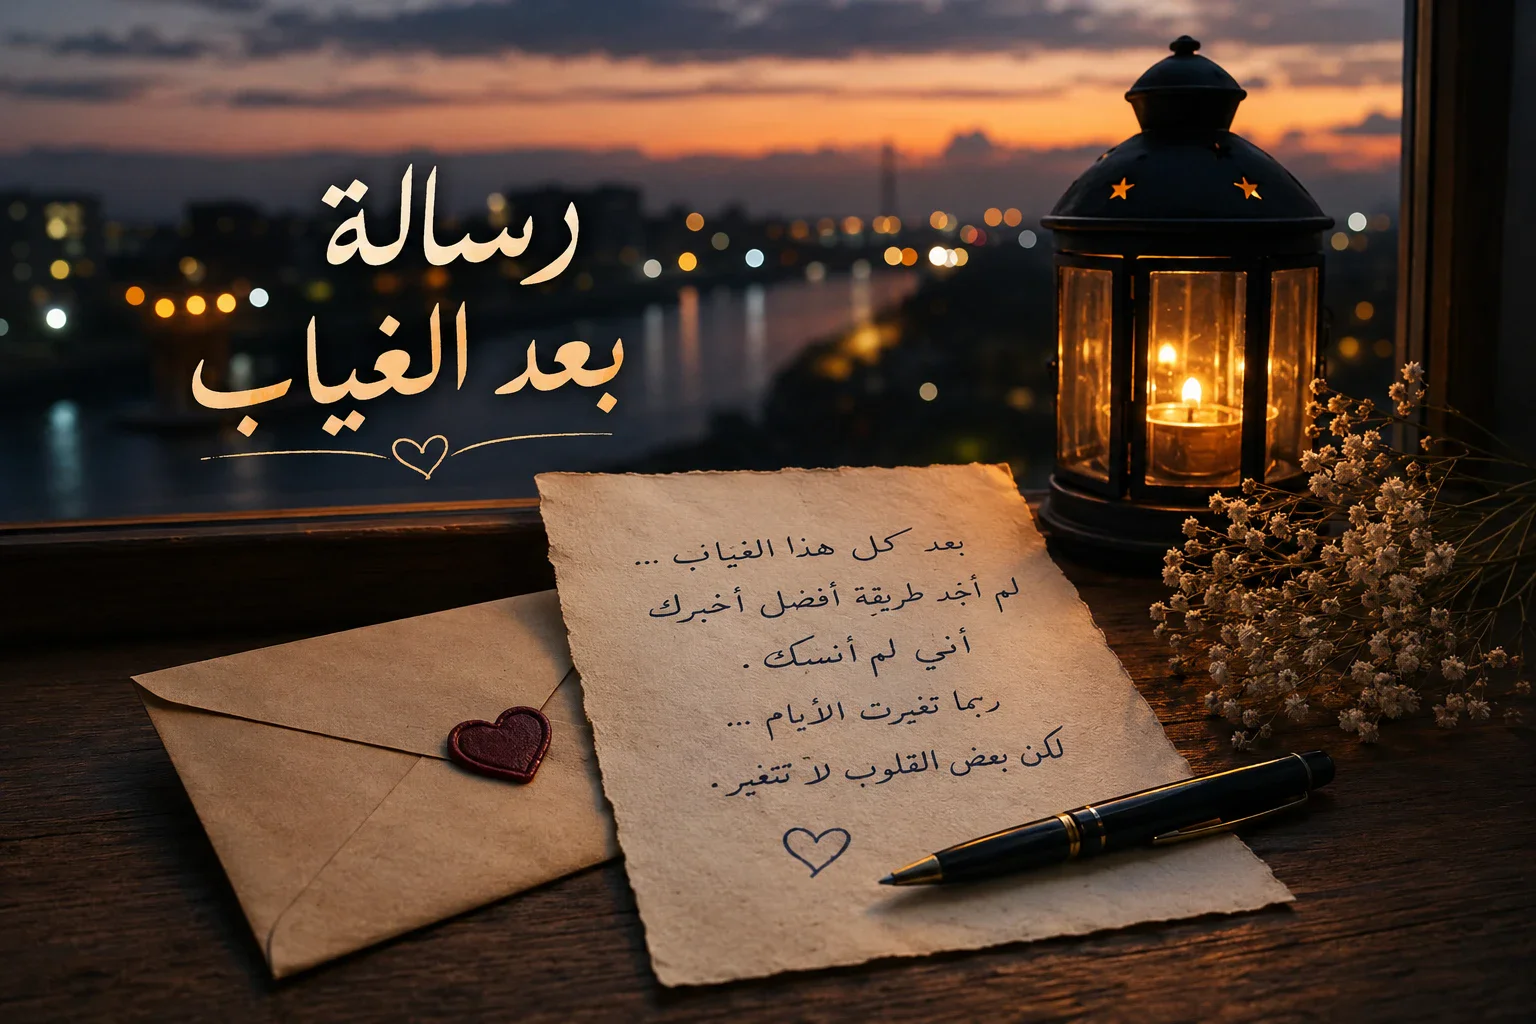 رسالة
بعد الغياب
بعد كل هذا الغياب ...
لم أجد طريقة أفضل أخبرك
أني لم أنسك .
ربما تغيرت الأيام ...
لكن بعض القلوب لا تتغير .